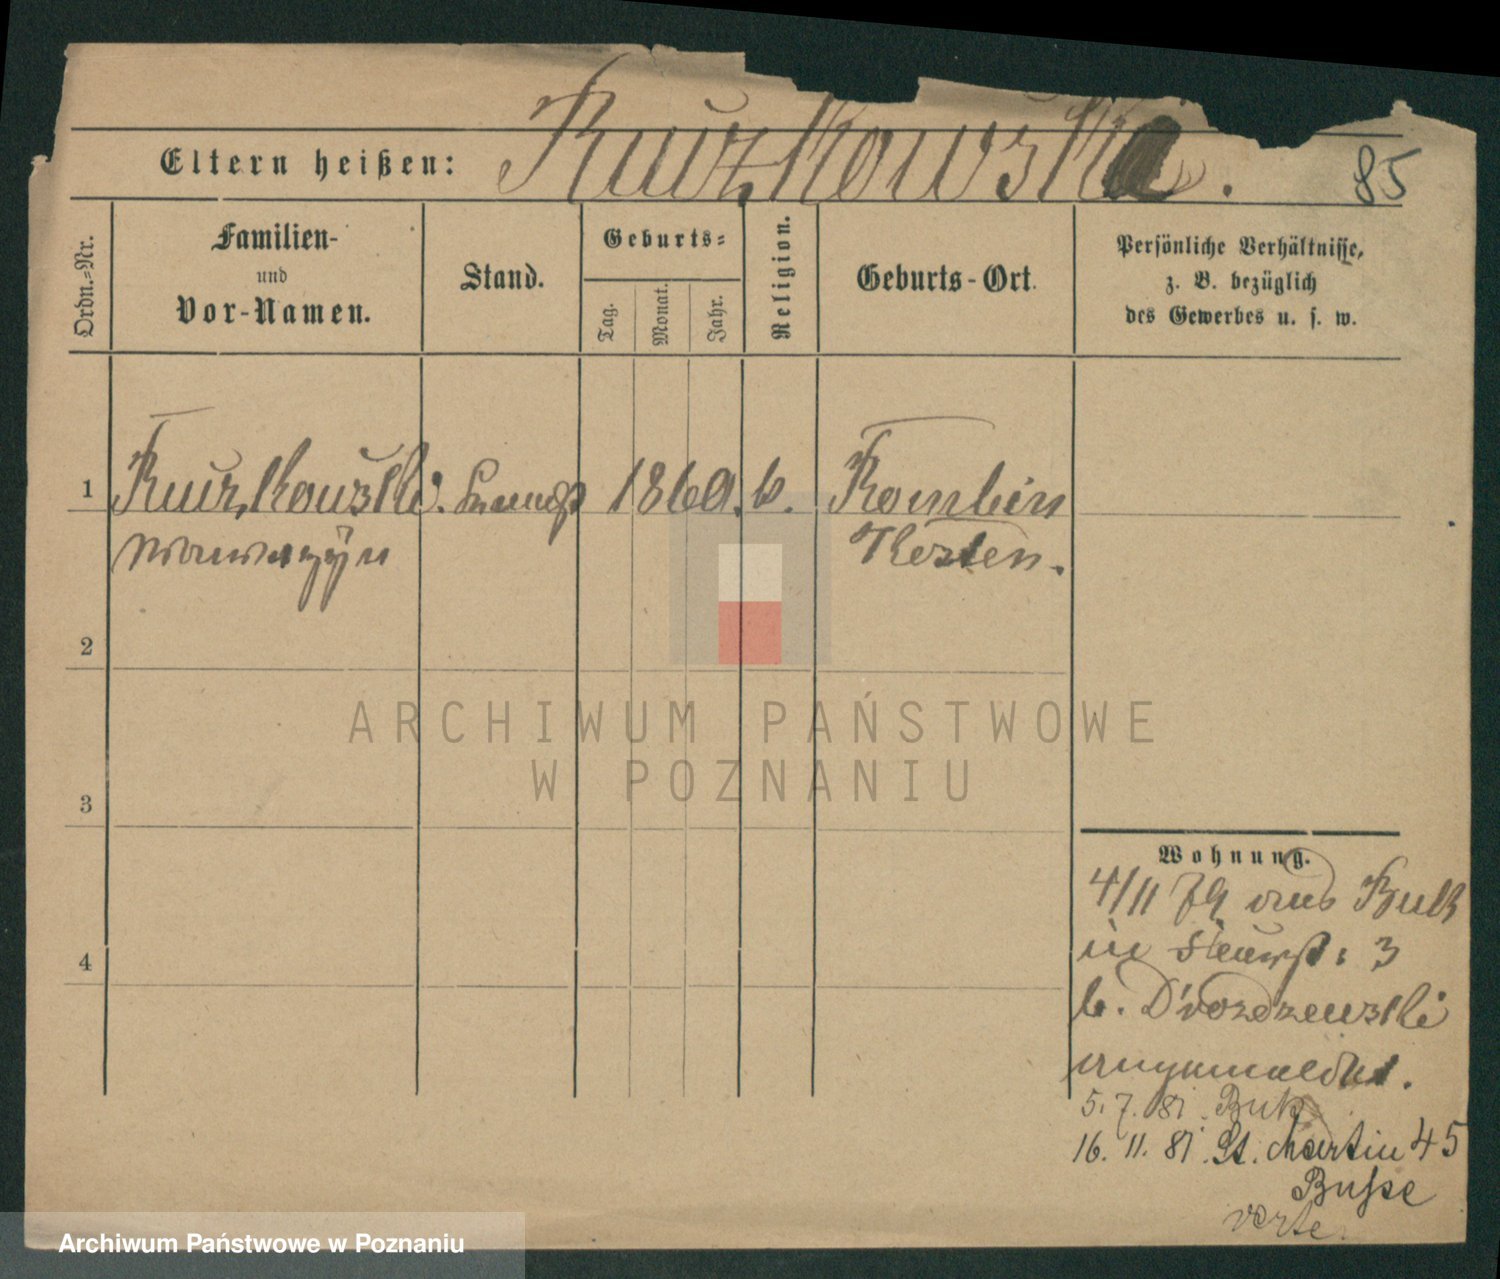 Eltern heißen: Kurzkowski. 85
Ordn.-Nr.
Familien-
und
Vor-Namen.
Stand.
Geburts-
Tag.
Monat.
Jahr.
Religion.
Geburts-Ort.
Persönliche Verhältnisse,
z. B. bezüglich
des Gewerbes u. s. w.
1 Kurzkowski. 1860. k. Rombin
Wawrzyn Kosten.
2
3
4
ARCHIWUM PAŃSTWOWE
W POZNANIU
Wohnung.
4/11 79 aus Buk
in 3
b. Drozdzewski
angemeldet.
5. 7. 81. Buk
16. 11. 81. St. Martin 45
Busse
verte
Archiwum Państwowe w Poznaniu